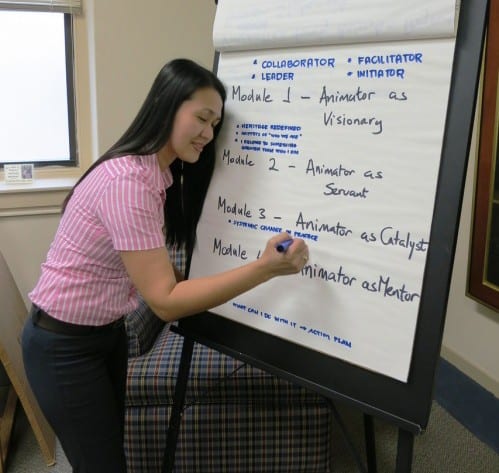 • COLLABORATOR • FACILITATOR
• LEADER • INITIATOR
Module 1 - Animator as
Visionary
• HERITAGE REDEFINED
"WHO WE ARE"
• I BELONG TO SOMETHING
GREATER THAN WHO I AM
Module 2 - Animator as
Servant
Module 3 - Animator as Catalyst
• SYSTEMIC CHANGE IN PRACTICE
Module Animator as Mentor
WHAT CAN I DO WITH IT → ACTION PLAN